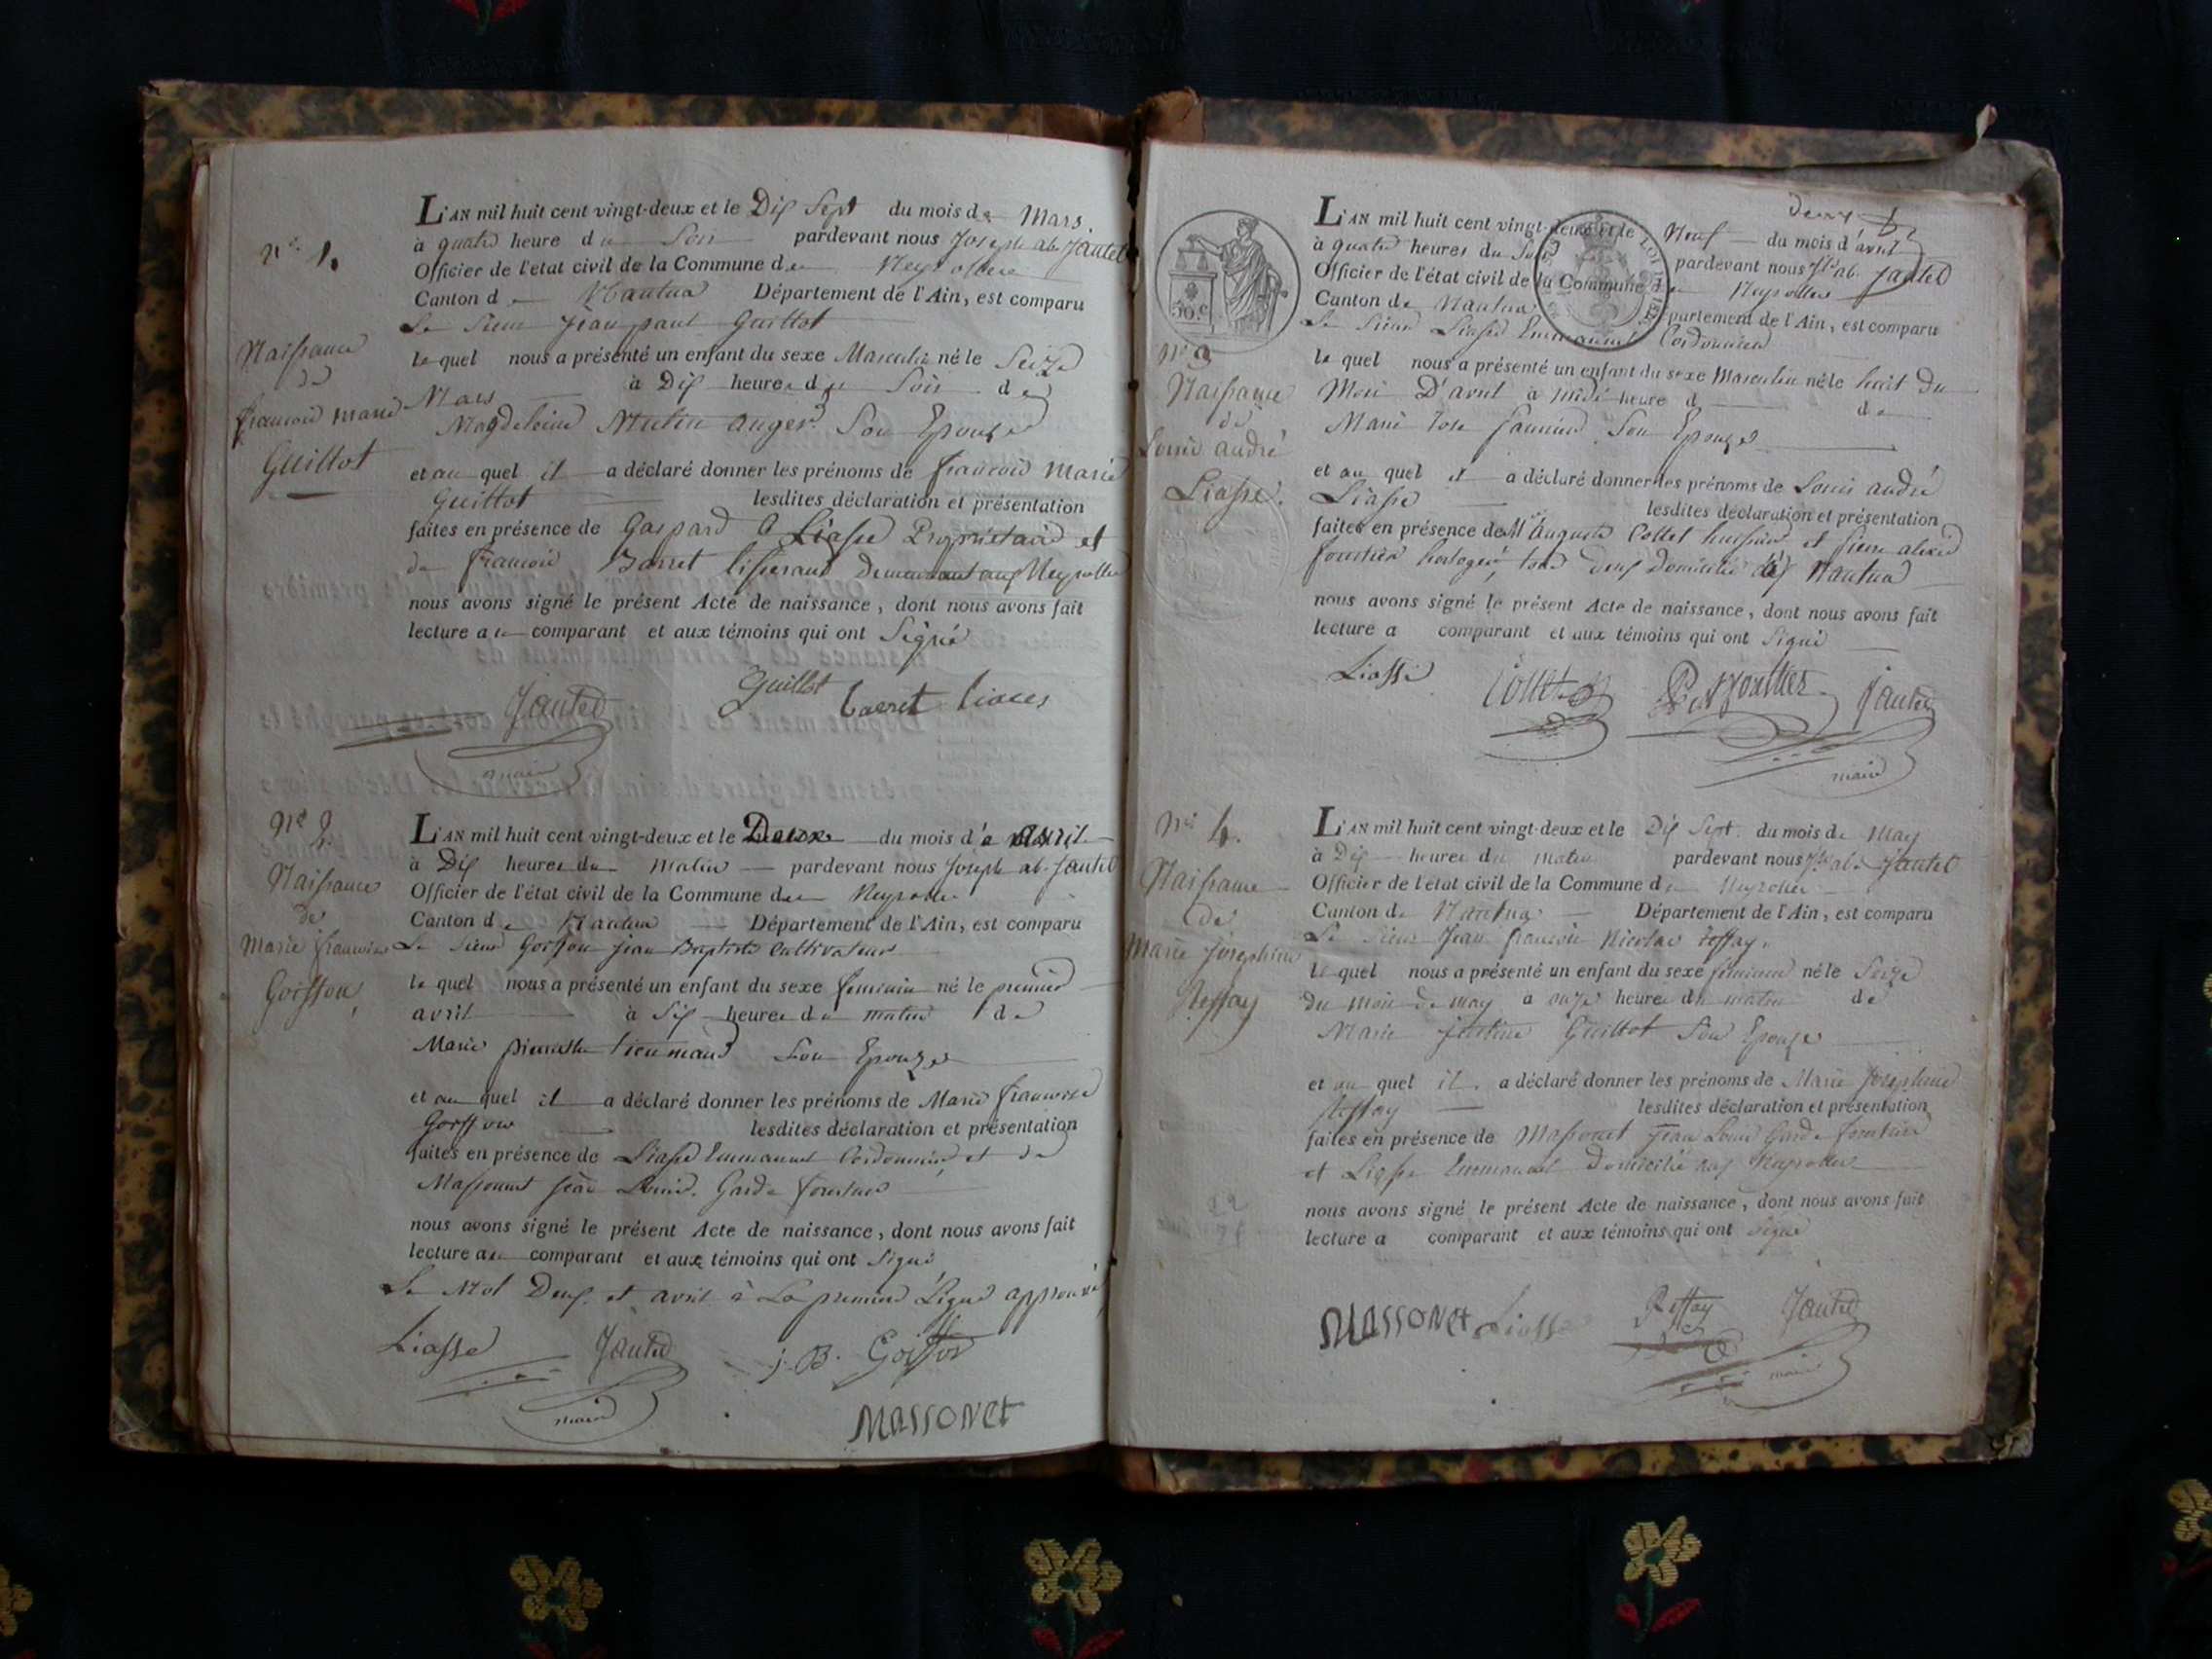 L'AN mil huit cent vingt-deux et le Dix Sept du mois de Mars.
à quatre heure du Soir pardevant nous Joseph ab. Jantet
Officier de l'état civil de la Commune de Neyrolles
Canton de Nantua Département de l'Ain, est comparu
Le Sieur Jean paul Guillot
lequel nous a présenté un enfant du sexe Masculin né le Seize
Mars à Dix heures du Soir de
Magdeleine Son Epouze
et au quel il a déclaré donner les prénoms de francois Marie
Guillot lesdites déclaration et présentation
faites en présence de Gaspard Liasse Propriétaire et
de francois Barret tisserand Demeurant aux Neyrolles
nous avons signé le présent Acte de naissance, dont nous avons fait
lecture au comparant et aux témoins qui ont Signé
Guillot
Jantet barret liaces
maire
N° 1.
Naissance
de
francois marie
Guillot
N° 2
Naissance
de
Marie francoise
Goiffon
L'AN mil huit cent vingt-deux et le Deux du mois d'avril
à Dix heures du matin pardevant nous Joseph ab. Jantet
Officier de l'état civil de la Commune de Neyrolles
Canton de Nantua Département de l'Ain, est comparu
Le Sieur Goiffon Jean Baptiste Cultivateur
lequel nous a présenté un enfant du sexe feminin né le premier
avril à Six heures du matin de
Marie pierrette Son Epouze
et au quel il a déclaré donner les prénoms de Marie francoise
Goiffon lesdites déclaration et présentation
faites en présence de Liasse Emmanuel Cordonnier et de
Massonet Jean Louis Garde forestier
nous avons signé le présent Acte de naissance, dont nous avons fait
lecture au comparant et aux témoins qui ont Signé
Le Mot Deux et avril à La premiere Ligne approuvé
Liasse Jantet j. B. Goiffon
maire
Massonet
deux
50.c.
L'AN mil huit cent vingt-deux et le Neuf du mois d'avril
à quatre heures du Soir pardevant nous Jph ab. Jantet
Officier de l'état civil de la Commune de Neyrolles
Canton de Nantua Département de l'Ain, est comparu
Le Sieur Liasse Emmanuel Cordonnier
lequel nous a présenté un enfant du sexe Masculin né le huit du
Mois D'avril à midi heure d de
Marie rose Son Epouze
et au quel il a déclaré donner les prénoms de Louis andré
Liasse lesdites déclaration et présentation
faites en présence de Mr Auguste Collet huissier et pierre alexis
horloger, tous deux Domiciliés à Nantua
nous avons signé le présent Acte de naissance, dont nous avons fait
lecture a comparant et aux témoins qui ont Signé
Liasse Collet Jantet
maire
N° 3
Naissance
de
Louis andré
Liasse.
N° 4.
Naissance
de
Marie Josephine
Reffay
L'AN mil huit cent vingt-deux et le Dix Sept. du mois de May
à Dix heures du matin pardevant nous Jph ab. Jantet
Officier de l'état civil de la Commune de Neyrolles
Canton de Nantua Département de l'Ain, est comparu
Le Sieur Jean francois Nicolas Reffay.
lequel nous a présenté un enfant du sexe feminin né le Seize
du mois de may à onze heures du matin de
Marie Guillot Son Epouze
et au quel il a déclaré donner les prénoms de Marie Josephine
Reffay lesdites déclaration et présentation
faites en présence de Massonet Jean Louis Garde forestier
et Liasse Emmanuel Domicilié aux Neyrolles
nous avons signé le présent Acte de naissance, dont nous avons fait
lecture a comparant et aux témoins qui ont Signé
Massonet Liasse Reffay Jantet
maire